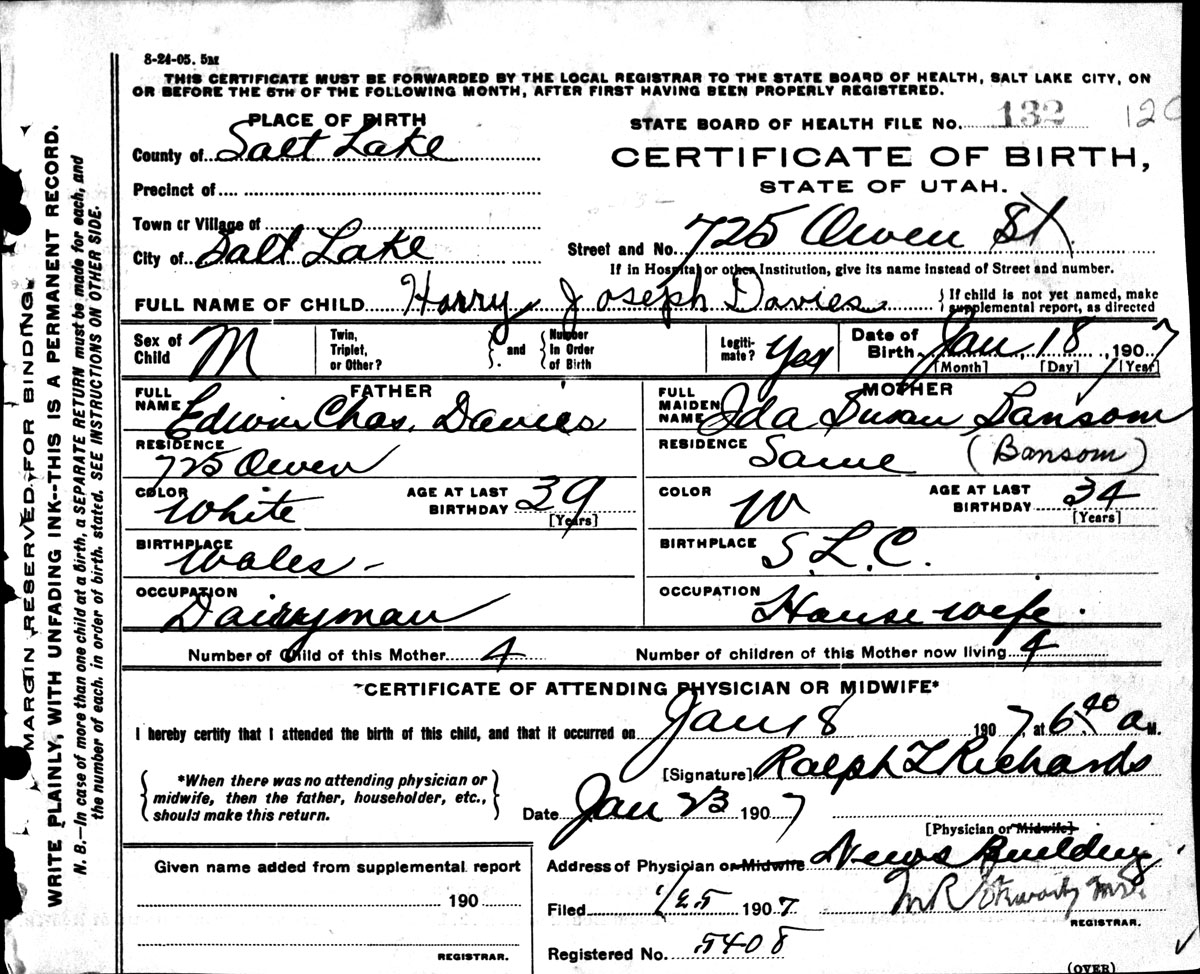 8-24-05. 5M
THIS CERTIFICATE MUST BE FORWARDED BY THE LOCAL REGISTRAR TO THE STATE BOARD OF HEALTH, SALT LAKE CITY, ON
OR BEFORE THE 5TH OF THE FOLLOWING MONTH, AFTER FIRST HAVING BEEN PROPERLY REGISTERED.
PLACE OF BIRTH
County of Salt Lake
Precinct of
Town or Village of
City of Salt Lake
STATE BOARD OF HEALTH FILE No. 132 120
CERTIFICATE OF BIRTH,
STATE OF UTAH.
Street and No. 725 Owen St.
If in Hospital or other Institution, give its name instead of Street and number.
FULL NAME OF CHILD Harry Joseph Davies { If child is not yet named, make supplemental report, as directed
Sex of Child M
Twin, Triplet, or Other? } and { Number In Order of Birth
Legiti-mate? Yes
Date of Birth Jan 18, 1907
[Month] [Day] [Year]
FATHER
FULL NAME Edwin Chas. Davies
RESIDENCE 725 Owen
COLOR White AGE AT LAST BIRTHDAY 39 [Years]
BIRTHPLACE Wales -
OCCUPATION Dairyman
MOTHER
FULL MAIDEN NAME Ida Susan Sansom
RESIDENCE Same (Bansom)
COLOR W AGE AT LAST BIRTHDAY 34 [Years]
BIRTHPLACE S.L.C.
OCCUPATION House wife.
Number of Child of this Mother 4 Number of children of this Mother now living 4
*CERTIFICATE OF ATTENDING PHYSICIAN OR MIDWIFE*
I hereby certify that I attended the birth of this child, and that it occurred on Jan 18 1907, at 6.40 a M.
{ *When there was no attending physician or midwife, then the father, householder, etc., should make this return. }
[Signature] Ralph T Richards
Date Jan 23 1907
[Physician or Midwife]
Address of Physician or Midwife News Building
Filed 1/25 1907
REGISTRAR.
Registered No. 5408
(OVER)
Given name added from supplemental report
190
REGISTRAR.
MARGIN RESERVED FOR BINDING.
WRITE PLAINLY, WITH UNFADING INK--THIS IS A PERMANENT RECORD.
N. B.—In case of more than one child at a birth, a SEPARATE RETURN must be made for each, and
the number of each, in order of birth, stated. SEE INSTRUCTIONS ON OTHER SIDE.